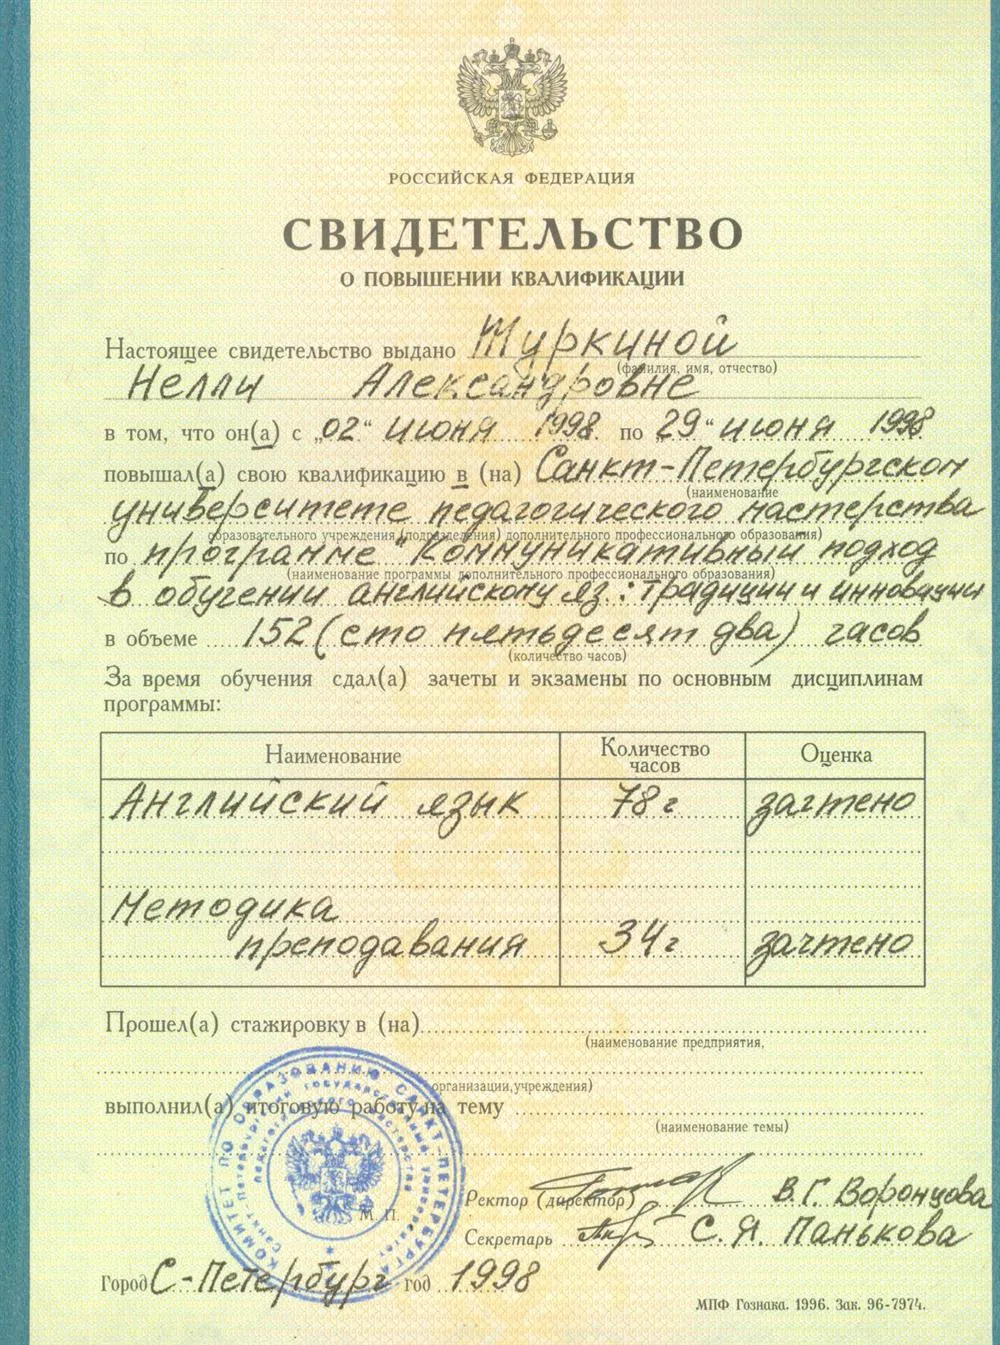 РОССИЙСКАЯ ФЕДЕРАЦИЯ
СВИДЕТЕЛЬСТВО
О ПОВЫШЕНИИ КВАЛИФИКАЦИИ
Настоящее свидетельство выдано Шуркиной
(фамилия, имя, отчество)
Нелли Александровне
в том, что он(а) с „02“ июня 1998 по „29“ июня 1998
повышал(а) свою квалификацию в (на) Санкт-Петербургском
(наименование
университете педагогического мастерства
образовательного учреждения (подразделения) дополнительного профессионального образования)
по программе "Коммуникативный подход
(наименование программы дополнительного профессионального образования)
в обучении английскому яз.: традиции и инновации
в объеме 152 (сто пятьдесят два) часов
(количество часов)
За время обучения сдал(а) зачеты и экзамены по основным дисциплинам
программы:
Наименование Количество часов Оценка
Английский язык 78 г зачтено
Методика
преподавания 34 г зачтено
Прошел(а) стажировку в (на)
(наименование предприятия,
организации, учреждения)
выполнил(а) итоговую работу на тему
(наименование темы)
КОМИТЕТ ПО ОБРАЗОВАНИЮ САНКТ-ПЕТЕРБУРГА
М. П.
Ректор (директор) В.Г. Воронцова
Секретарь С.Я. Панькова
Город С-Петербург год 1998
МПФ Гознака. 1996. Зак. 96-7974.